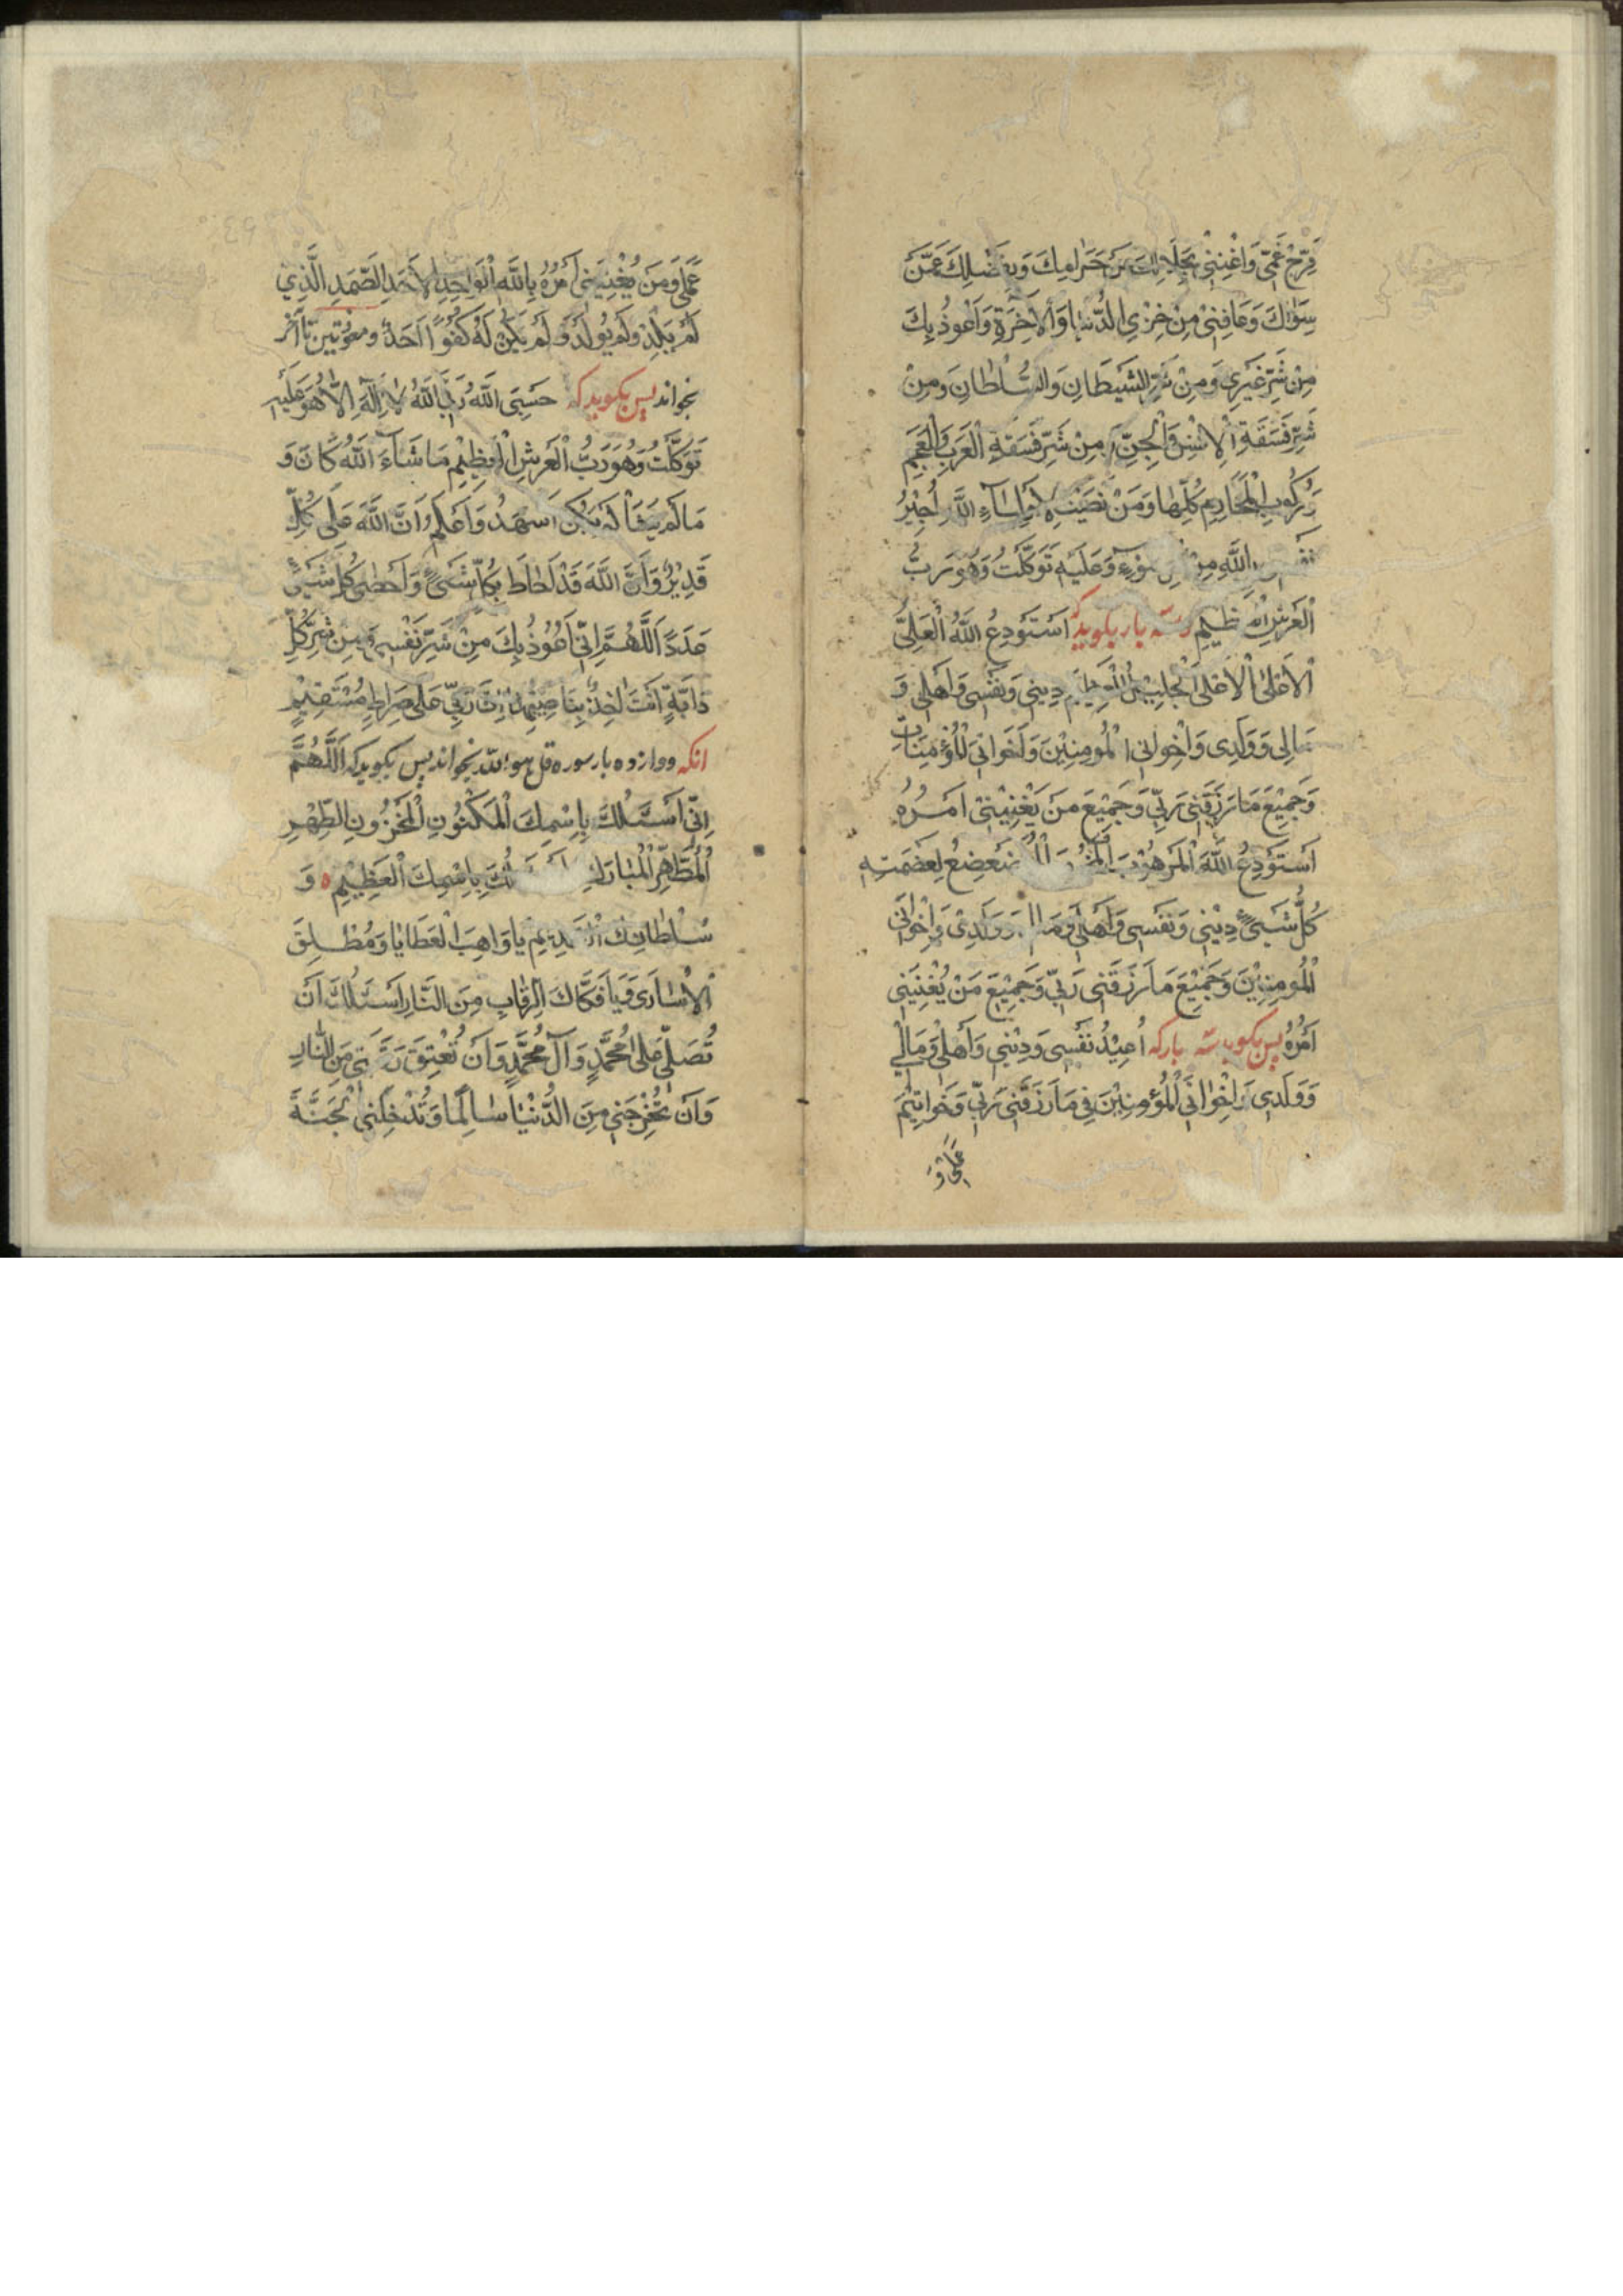 فَرِّحْ غَمِّي وَاغْنِنِي بِحَلَالِكَ عَنْ حَرَامِكَ وَبِفَضْلِكَ عَمَّنْ
سِوَاكَ وَعَافِنِي مِنْ خِزْيِ الدُّنْيَا وَالْآخِرَةِ وَاَعُوذُ بِكَ
مِنْ شَرِّ غَيْرِي وَمِنْ شَرِّ الشَّيْطَانِ وَالسُّلْطَانِ وَمِنْ
شَرِّ فَسَقَةِ الْاِنْسِ وَالْجِنِّ وَمِنْ شَرِّ فَسَقَةِ الْعَرَبِ وَالْعَجَمِ
وَرُكُوبِ الْمَحَارِمِ كُلِّهَا وَمَنْ نَصَبَ لِاَوْلِيَاءِ اللَّهِ اُجِيْرُ
نَفْسِي بِاللَّهِ مِنْ سُوْءٍ وَعَلَيْهِ تَوَكَّلْتُ وَهُوَ رَبُّ
الْعَرْشِ الْعَظِيمِ وسه بار بكويد كه اَسْتَوْدِعُ اللَّهَ الْعَلِيَّ
الْاَعْلَى الْاَعْلَى الْجَلِيْلَ الْعَظِيْمَ دِينِي وَنَفْسِي وَاَهْلِي وَ
مَالِي وَوَلَدِي وَاِخْوَانِي الْمُومِنِيْنَ وَاَخَوَاتِي الْمُؤْمِنَاتِ
وَجَمِيْعَ مَا رَزَقَنِي رَبِّي وَجَمِيْعَ مَنْ يَعْنِيْنِي اَمْرُهُ
اَسْتَوْدِعُ اللَّهَ الْمَرْهُوْبَ الْمَخُوْفَ الْمُتَضَعْضِعُ لِعَظَمَتِهِ
كُلُّ شَيْءٍ دِيْنِي وَنَفْسِي وَاَهْلِي وَمَالِي وَوَلَدِيْ وَاِخْوَانِيَ
الْمُومِنِيْنَ وَجَمِيْعَ مَا رَزَقَنِي رَبِّي وَجَمِيْعَ مَنْ يُعْنِيْنِي
اَمْرُهُ پس بكويد سه باركه اُعِيْذُ نَفْسِي وَدِيْنِي وَاَهْلِي وَمَالِي
وَوَلَدِي وَاِخْوَانِيَ الْمُؤْمِنِيْنَ فِي مَا رَزَقَنِي رَبِّي وَخَوَاتِيْمَ
عَمَلِي وَ
عَمَلِي وَمَنْ يُعْنِيْنِي اَمْرُهُ بِاللَّهِ الْوَاحِدِ الْاَحَدِ الصَّمَدِ الَّذِي
لَمْ يَلِدْ وَلَمْ يُولَدْ وَلَمْ يَكُنْ لَهُ كُفُوًا اَحَدٌ ومعوّذتين تا آخر
بخواند پس بكويد كه حَسْبِيَ اللَّهُ رَبِّيَ اللَّهُ لَا اِلٰهَ اِلَّا هُوَ عَلَيْهِ
تَوَكَّلْتُ وَهُوَ رَبُّ الْعَرْشِ الْعَظِيْمِ مَا شَاءَ اللَّهُ كَانَ وَ
مَا لَمْ يَشَأْ لَمْ يَكُنْ اَشْهَدُ وَاَعْلَمُ اَنَّ اللَّهَ عَلَى كُلِّ
قَدِيْرٌ وَاَنَّ اللَّهَ قَدْ اَحَاطَ بِكُلِّ شَيْءٍ وَاَحْصَى كُلَّ شَيْءٍ
عَدَدًا اَللَّهُمَّ اِنِّي اَعُوْذُ بِكَ مِنْ شَرِّ نَفْسِي وَمِنْ شَرِّ كُلِّ
دَابَّةٍ اَنْتَ اٰخِذٌ بِنَاصِيَتِهَا اِنَّ رَبِّي عَلَى صِرَاطٍ مُسْتَقِيْمٍ
انكه دوازده بار سوره قل هو الله بخواند پس بكويد كه اَللَّهُمَّ
اِنِّي اَسْئَلُكَ بِاِسْمِكَ الْمَكْنُونِ الْمَخْزُونِ الطُّهْرِ
الْمُطَهَّرِ الْمُبَارَكِ بِاِسْمِكَ الْعَظِيْمِ وَ
سُلْطَانِكَ الْقَدِيْمِ يَا وَاهِبَ الْعَطَايَا وَمُطْلِقَ
الْاُسَارَى وَيَا فَكَّاكَ الرِّقَابِ مِنَ النَّارِ اَسْئَلُكَ اَنْ
تُصَلِّيَ عَلَى مُحَمَّدٍ وَآلِ مُحَمَّدٍ وَاَنْ تُعْتِقَ رَقَبَتِي مِنَ النَّارِ
وَاَنْ تُخْرِجَنِي مِنَ الدُّنْيَا سَالِمًا وَتُدْخِلَنِي الْجَنَّةَ